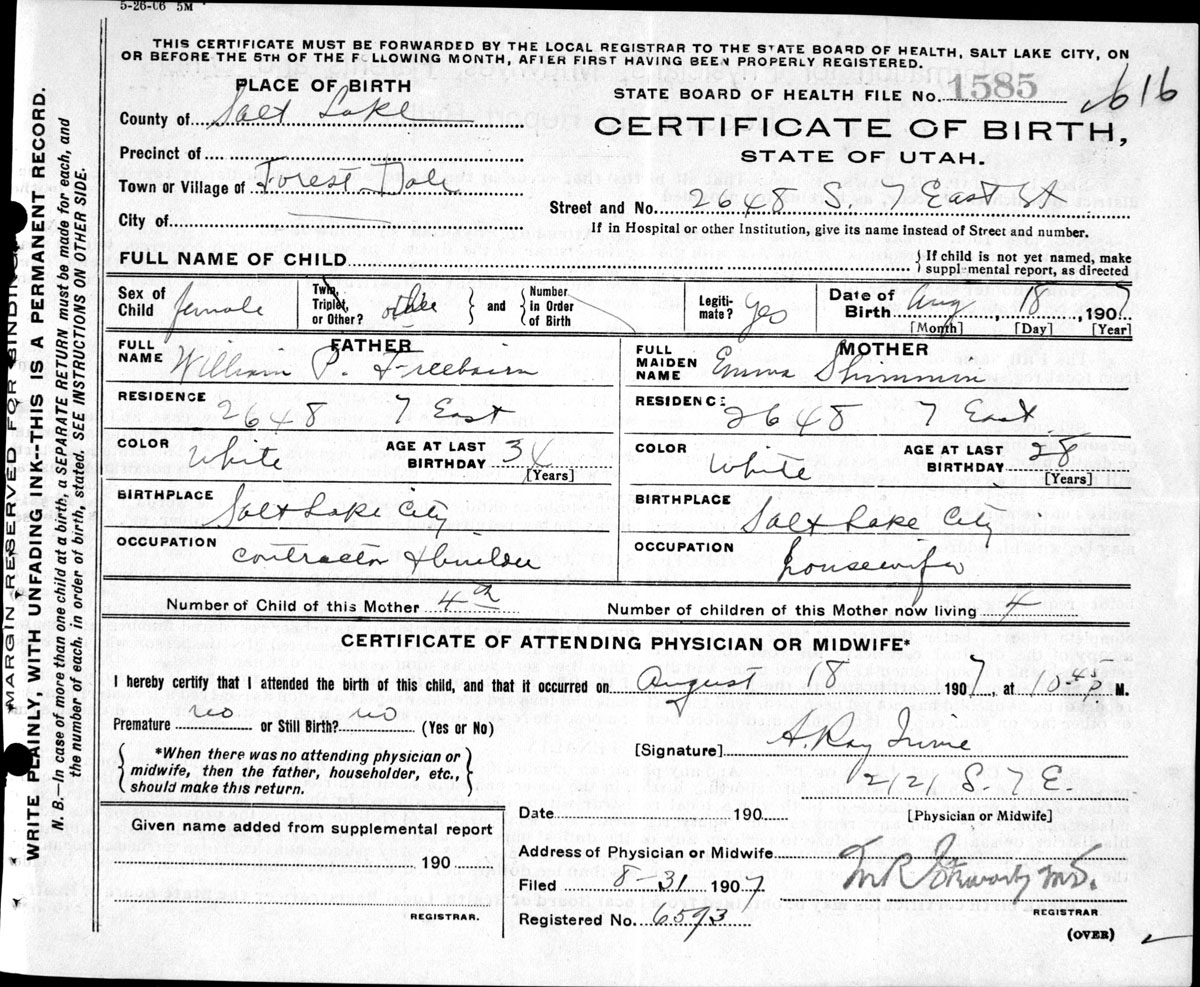 5-26-06 5M
THIS CERTIFICATE MUST BE FORWARDED BY THE LOCAL REGISTRAR TO THE STATE BOARD OF HEALTH, SALT LAKE CITY, ON
OR BEFORE THE 5TH OF THE FOLLOWING MONTH, AFTER FIRST HAVING BEEN PROPERLY REGISTERED.
PLACE OF BIRTH
County of Salt Lake
Precinct of
Town or Village of Forest Dale
City of
STATE BOARD OF HEALTH FILE No. 1585 616
CERTIFICATE OF BIRTH,
STATE OF UTAH.
Street and No. 2648 S. 7 East St
If in Hospital or other Institution, give its name instead of Street and number.
FULL NAME OF CHILD { If child is not yet named, make
supplemental report, as directed
Sex of Child female Twin, Triplet, or Other? and { Number in Order of Birth Legiti-mate? yes Date of Birth Aug 18, 1907
[Month] [Day] [Year]
FATHER
FULL NAME William P. Freebairn
RESIDENCE 2648 7 East
COLOR White AGE AT LAST BIRTHDAY 34
[Years]
BIRTHPLACE Salt Lake City
OCCUPATION Contractor & builder
MOTHER
FULL MAIDEN NAME Emma Shimmin
RESIDENCE 2648 7 East
COLOR White AGE AT LAST BIRTHDAY 28
[Years]
BIRTHPLACE Salt Lake City
OCCUPATION housewife
Number of Child of this Mother 4th Number of children of this Mother now living 4
CERTIFICATE OF ATTENDING PHYSICIAN OR MIDWIFE*
I hereby certify that I attended the birth of this child, and that it occurred on August 18 1907, at 10 45 P M.
Premature no or Still Birth? no (Yes or No)
{ *When there was no attending physician or
midwife, then the father, householder, etc.,
should make this return. }
[Signature] A. Ray Irvine
212 S. 7 E.
Date 190 [Physician or Midwife]
Given name added from supplemental report
190
REGISTRAR.
Address of Physician or Midwife
Filed 8-31 1907
Registered No. 6593
M.D.
REGISTRAR
(OVER)
MARGIN RESERVED FOR BINDING
WRITE PLAINLY, WITH UNFADING INK--THIS IS A PERMANENT RECORD.
N. B.—In case of more than one child at a birth, a SEPARATE RETURN must be made for each, and
the number of each, in order of birth, stated. SEE INSTRUCTIONS ON OTHER SIDE.